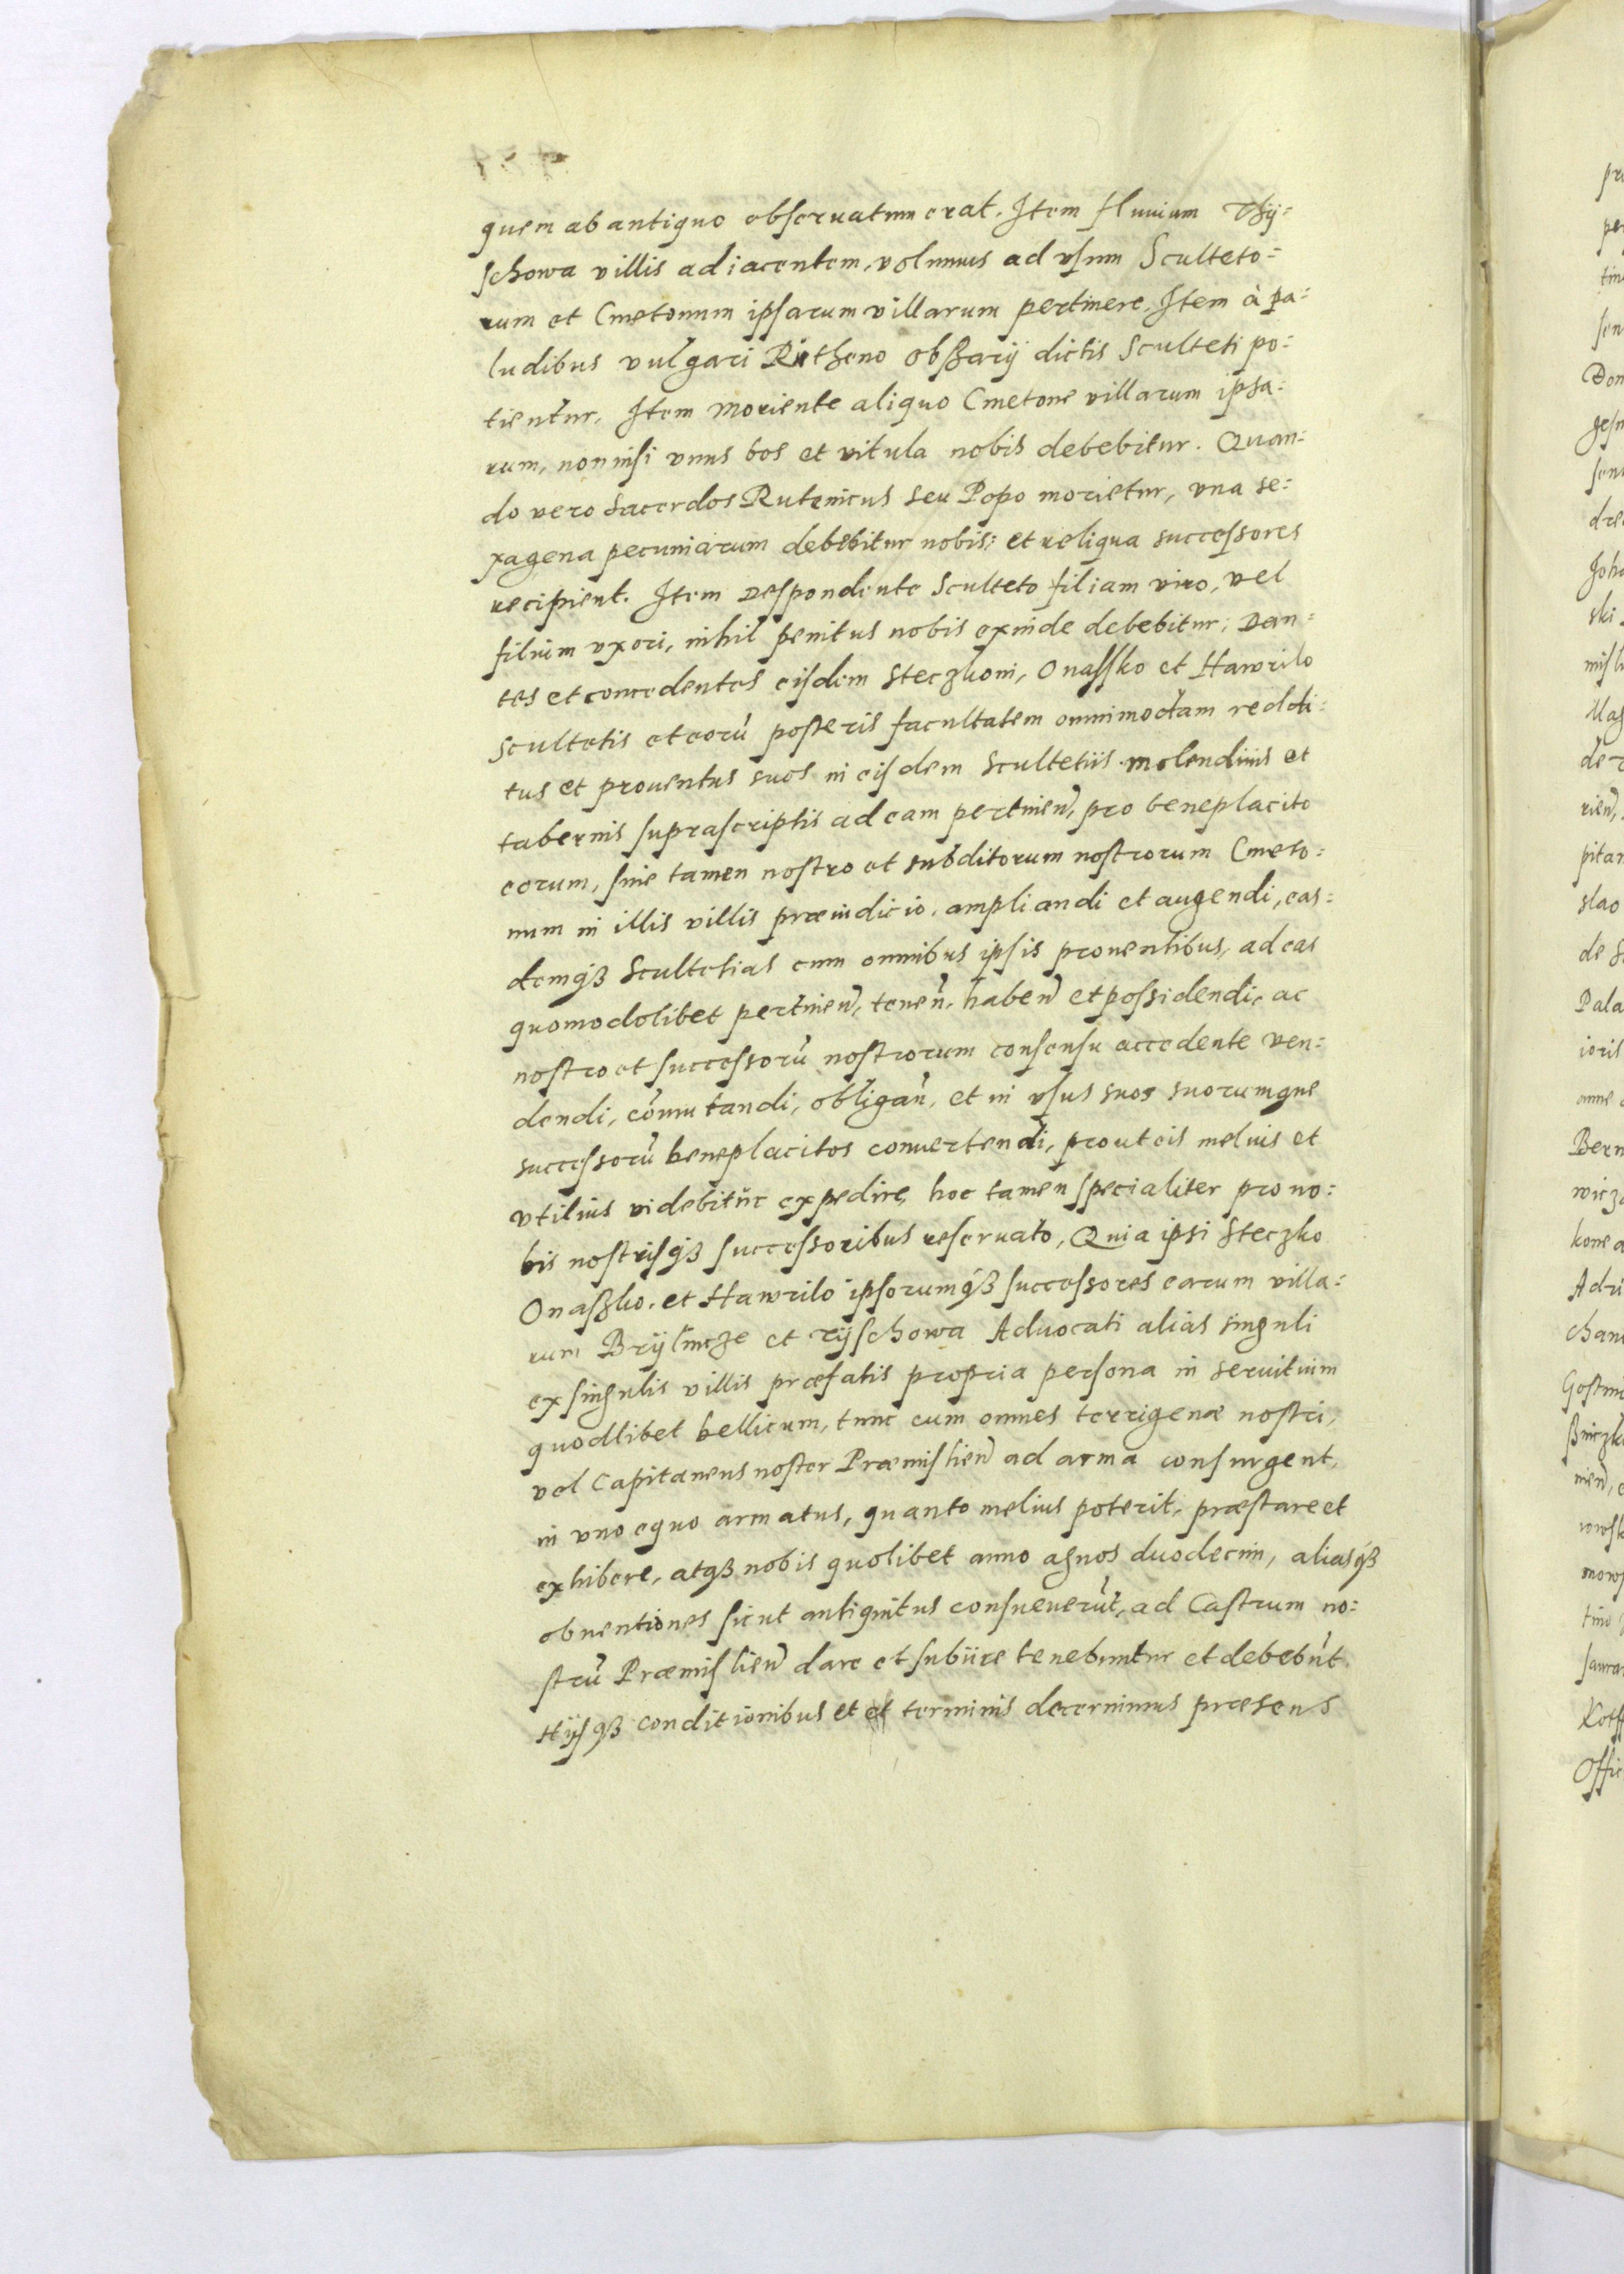 quem ab antiquo obseruatum erat. Item fluuium Thÿ=
schowa villis adiacentem, volumus ad vsum Sculteto=
rum et Cmetonum ipsarum villarum pertinere, Item à pa=
ludibus vulgari Rutheno obßarÿ dictis Sculteti po=
tientur, Item moriente aliquo Cmetone villarum ipsa=
rum, nonnisi vnus bos et vitula nobis debebitur. Quan=
do vero Sacerdos Rutenicus seu Popo morietur, vna se=
xagena pecuniarum debebitur nobis; et reliqua successores
recipient. Item Despondente Sculteto filiam viro, vel
filium vxori, nihil penitus nobis exinde debebitur; Dan=
tes et concedentes eisdem Steczkoni, Onassko et Hawrilo
Scultetis et eorũ posteris facultatem omnimodam reddi=
tus et prouentus suos in eisdem Scultetiis molendinis et
tabernis suprascriptis ad eam pertineñ, pro beneplacito
eorum, sine tamen nostro et subditorum nostrorum Cmeto=
num in illis villis præiudicio, ampliandi et augendi, eas=
demqß Scultetias cum omnibus ipsis prouentibus, ad eas
quomodolibet pertineñ, teneñ, habeñ et possidendi, ac
nostro et successorũ nostrorum consensu accedente ven=
dendi, cõmutandi, obligañ, et in vsus suos suorumque
successorũ beneplacitos conuertendi, prout eis melius et
vtilius videbitur expedire, hoc tamen specialiter pro no=
bis nostrisqß successoribus reseruato, Quia ipsi Steczko
Onaßko, et Hawrilo ipsorumqß successores earum villa=
rum Brÿlincze et Tÿschowa Aduocati alias singuli
ex singulis villis præfatis propria persona in seruitium
quodlibet bellicum, tunc cum omnes terrigenæ nostri,
vel Capitaneus noster Præmislieñ ad arma consurgent,
in vno equo armatus, quanto melius poterit, præstare et
exhibere, atqß nobis quolibet anno agnos duodecim, aliasqß
obuentiones sicut antiquitus consueuerũt, ad Castrum no=
strũ Præmislieñ dare et subiire tenebuntur et debebũt.
Hÿsqß conditionibus et et terminis decernimus præsens